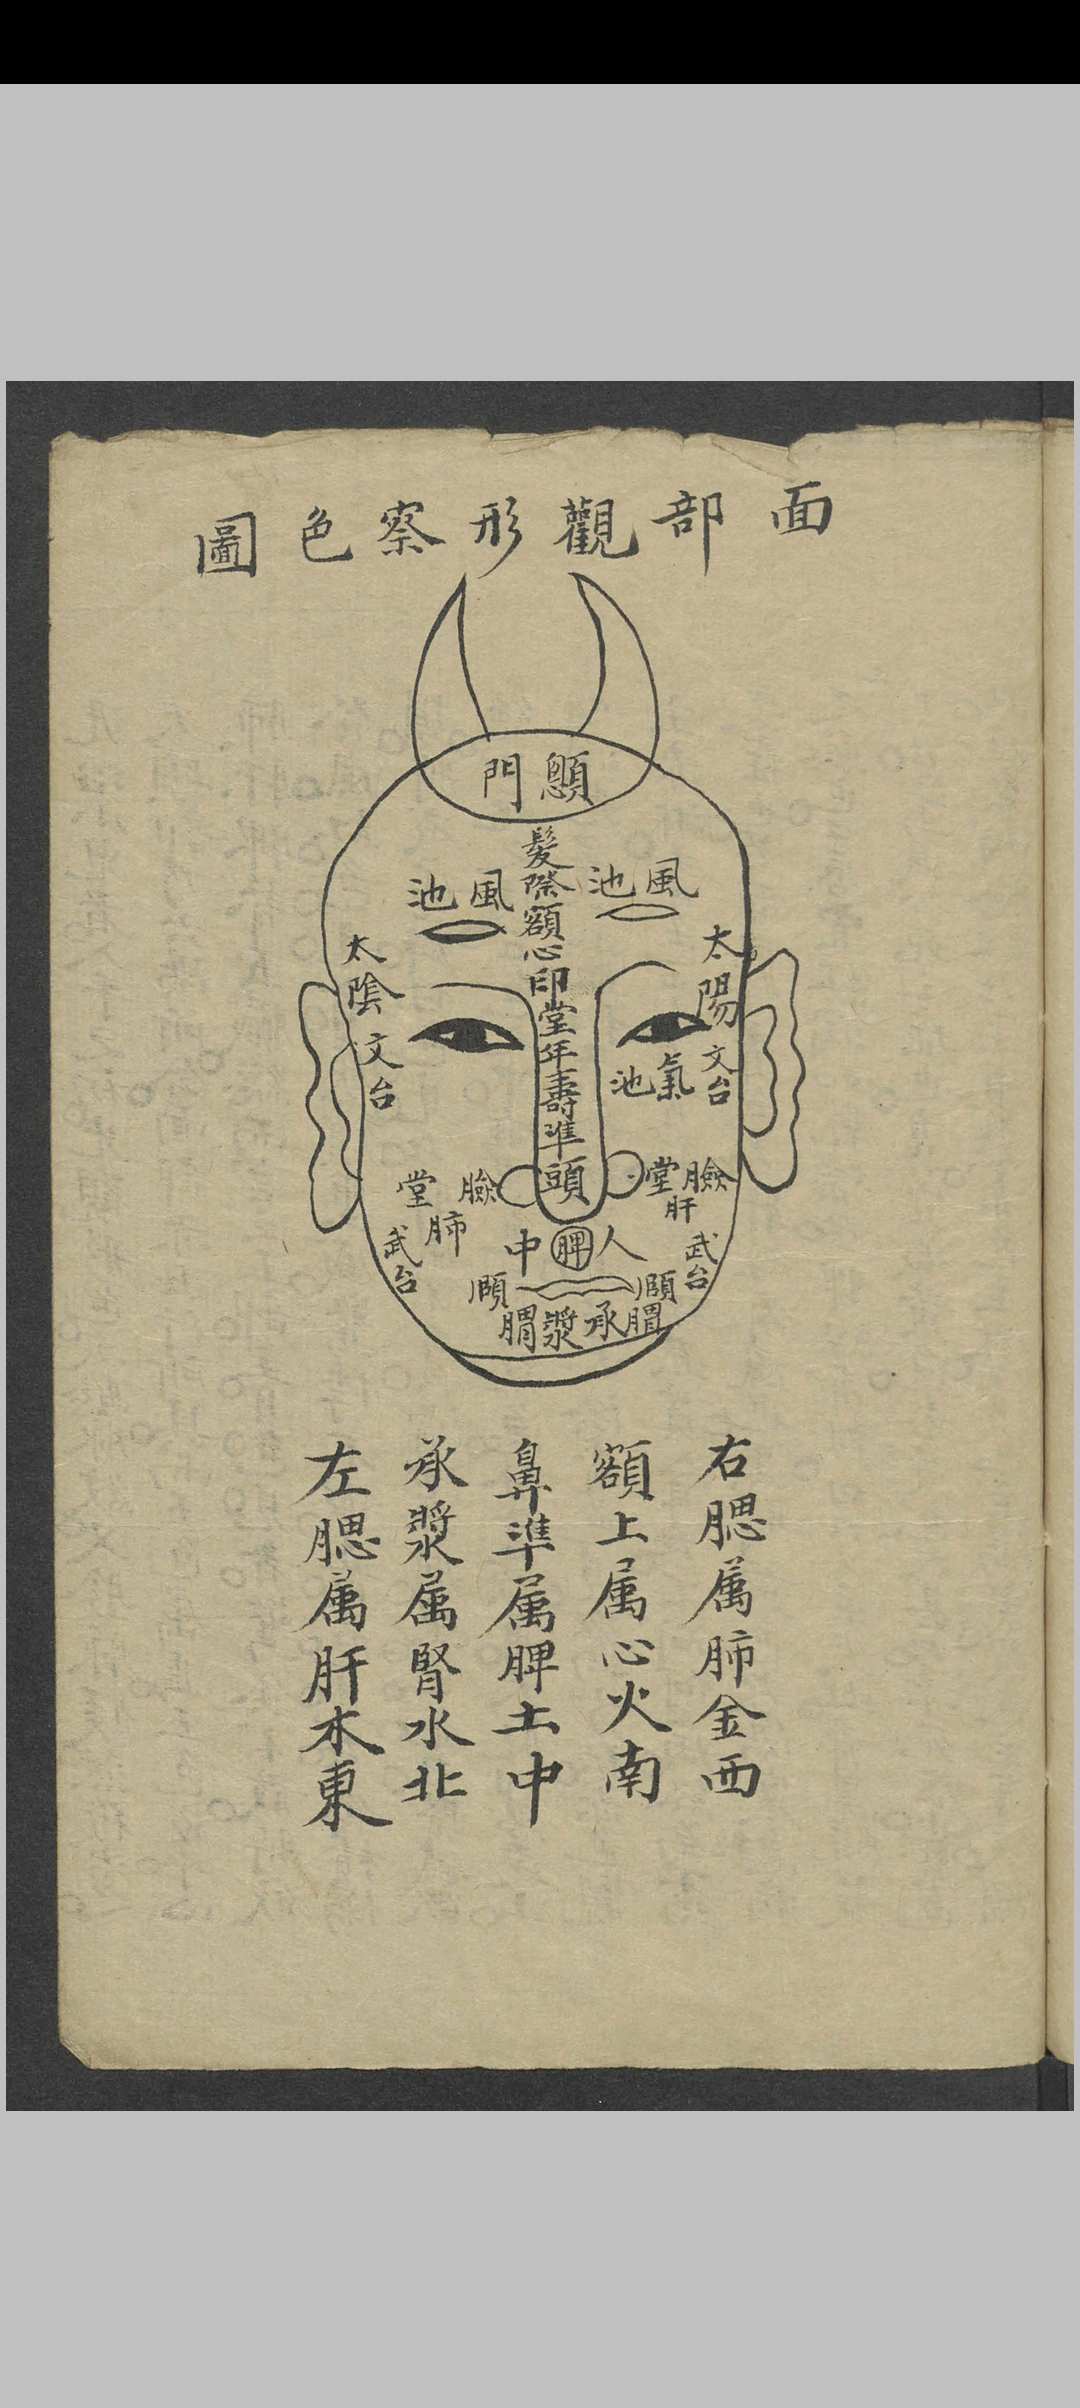 面部觀形察色圖
顖門
髮際額心印堂年壽準頭
風池
風池
太陽
太陰
文台
文台
氣池
臉堂
肝
臉堂
肺
武台
武台
人中
脾
頤
頤
承漿
右腮属肺金西
額上属心火南
鼻準属脾土中
承漿属腎水北
左腮属肝木東